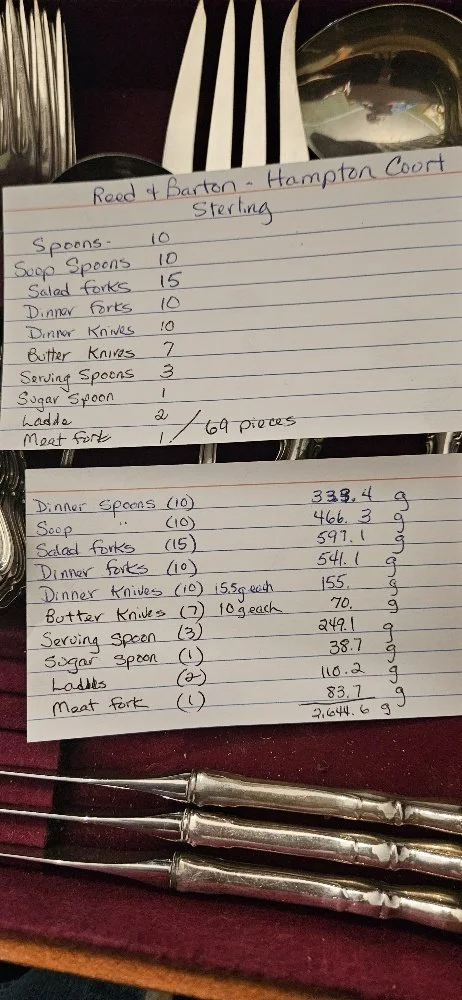 Reed & Barton - Hampton Court
Sterling
Spoons - 10
Soop Spoons 10
Salad forks 15
Dinner forks 10
Dinner Knives 10
Butter Knives 7
Serving Spoons 3
Sugar Spoon 1
Ladde 2
Meat fork 1 / 69 pieces
Dinner Spoons (10) 333.4 g
Soop " (10) 466.3 g
Salad forks (15) 597.1 g
Dinner forks (10) 541.1 g
Dinner Knives (10) 15.5g each 155. g
Butter Knives (7) 10 g each 70. g
Serving Spoon (3) 249.1 g
Sugar Spoon (1) 38.7 g
Laddls (2) 110.2 g
Meat fork (1) 83.7 g
2,644.6 g